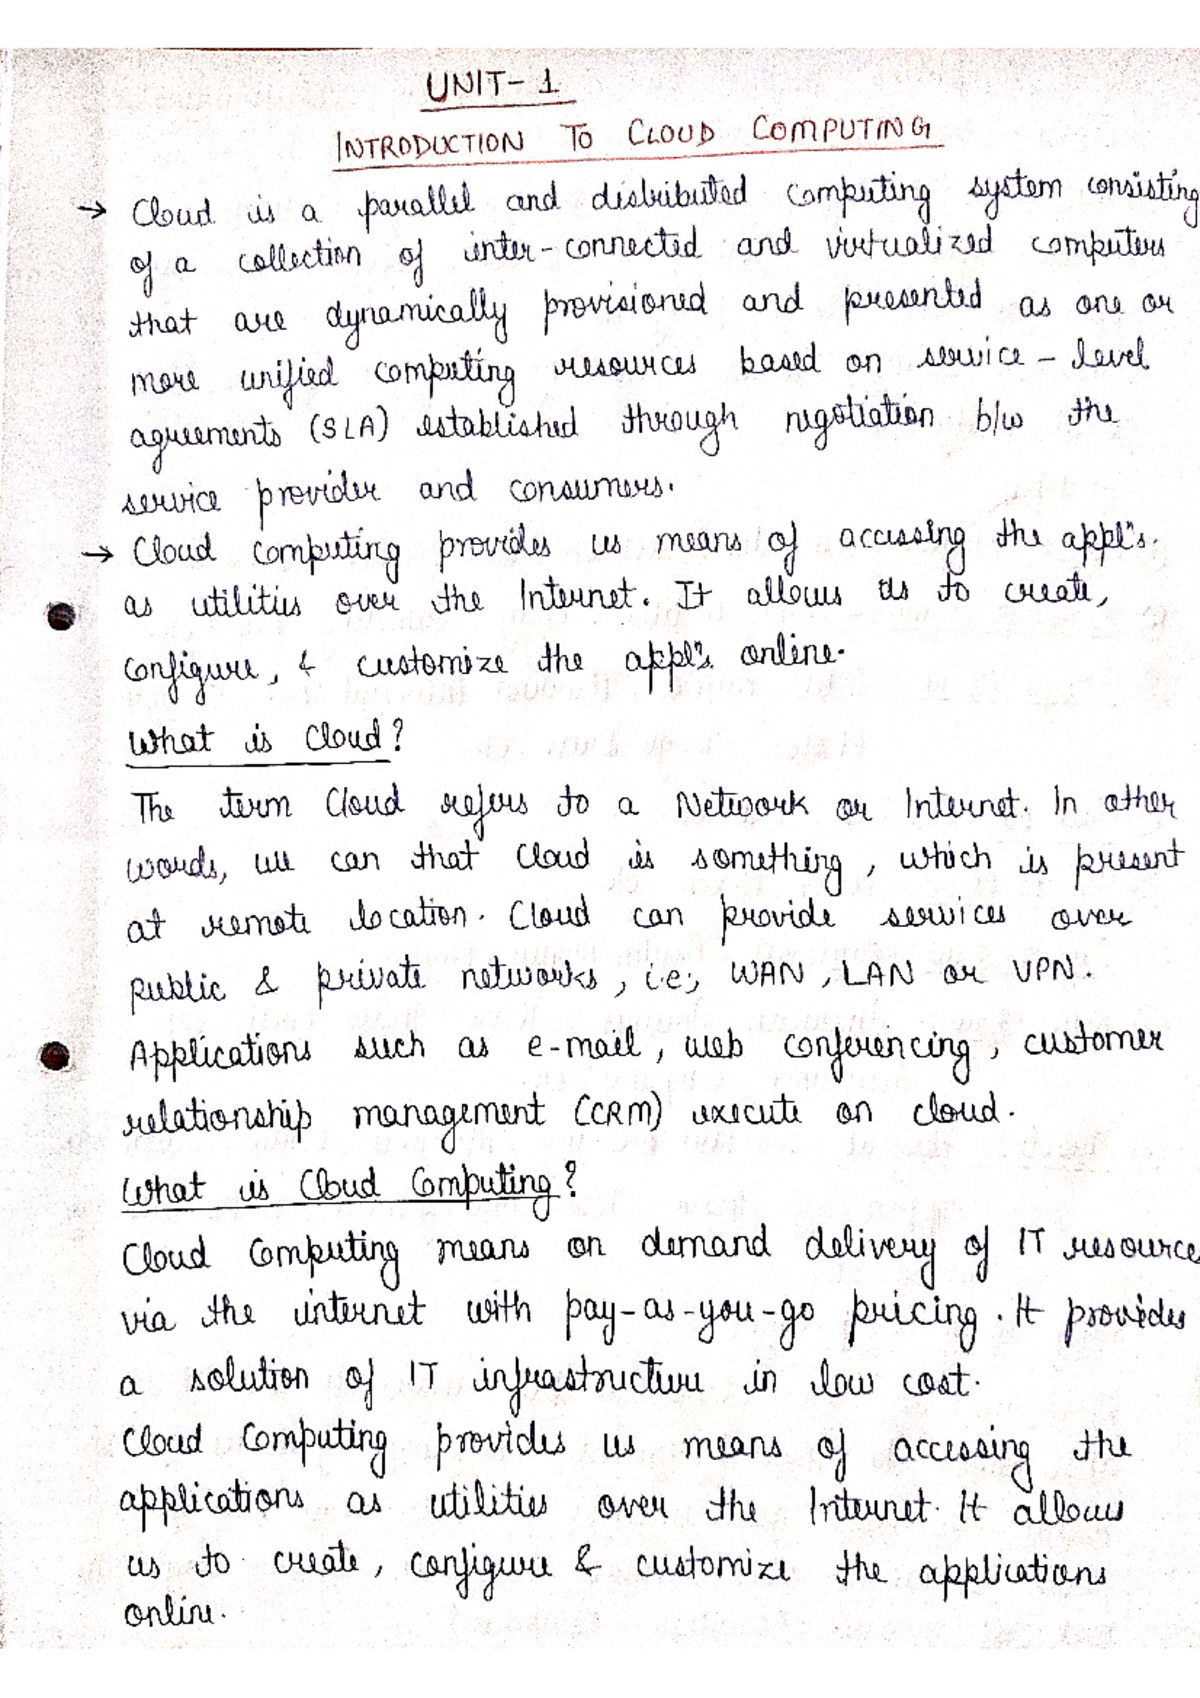 UNIT-1
INTRODUCTION TO CLOUD COMPUTING
→ Cloud is a parallel and distributed computing system consisting
of a collection of inter-connected and virtualized computers
that are dynamically provisioned and presented as one or
more unified computing resources based on service-level
agreements (SLA) established through negotiation b/w the
service provider and consumers.
→ Cloud computing provides us means of accessing the appl"s.
as utilities over the Internet. It allows us to create,
configure, & customize the appl"s. online.
What is Cloud?
The term Cloud refers to a Network or Internet. In other
words, we can that cloud is something, which is present
at remote location. Cloud can provide services over
public & private networks, i.e., WAN, LAN or VPN.
Applications such as e-mail, web conferencing, customer
relationship management (CRM) execute on cloud.
What is Cloud Computing?
Cloud Computing means on demand delivery of IT resource
via the internet with pay-as-you-go pricing. It provides
a solution of IT infrastructure in low cost.
Cloud Computing provides us means of accessing the
applications as utilities over the Internet. It allows
us to create, configure & customize the applications
online.